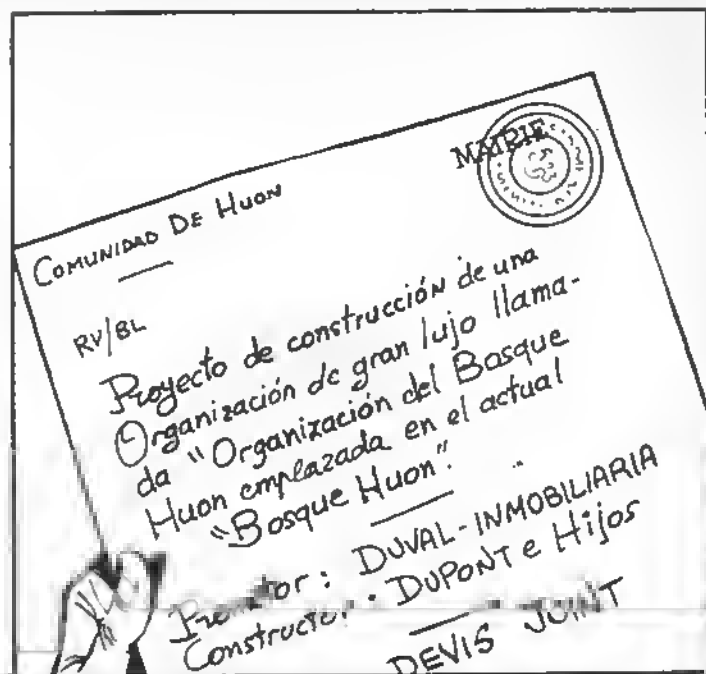 MAIRIE
COMUNIDAD DE HUON
RV/BL
Proyecto de construcción de una
Organización de gran lujo llama-
da "Organización del Bosque
Huon emplazada en el actual
"Bosque Huon".
Promotor: DUVAL-INMOBILIARIA
Constructor: DUPONT e Hijos
DEVIS JOINT